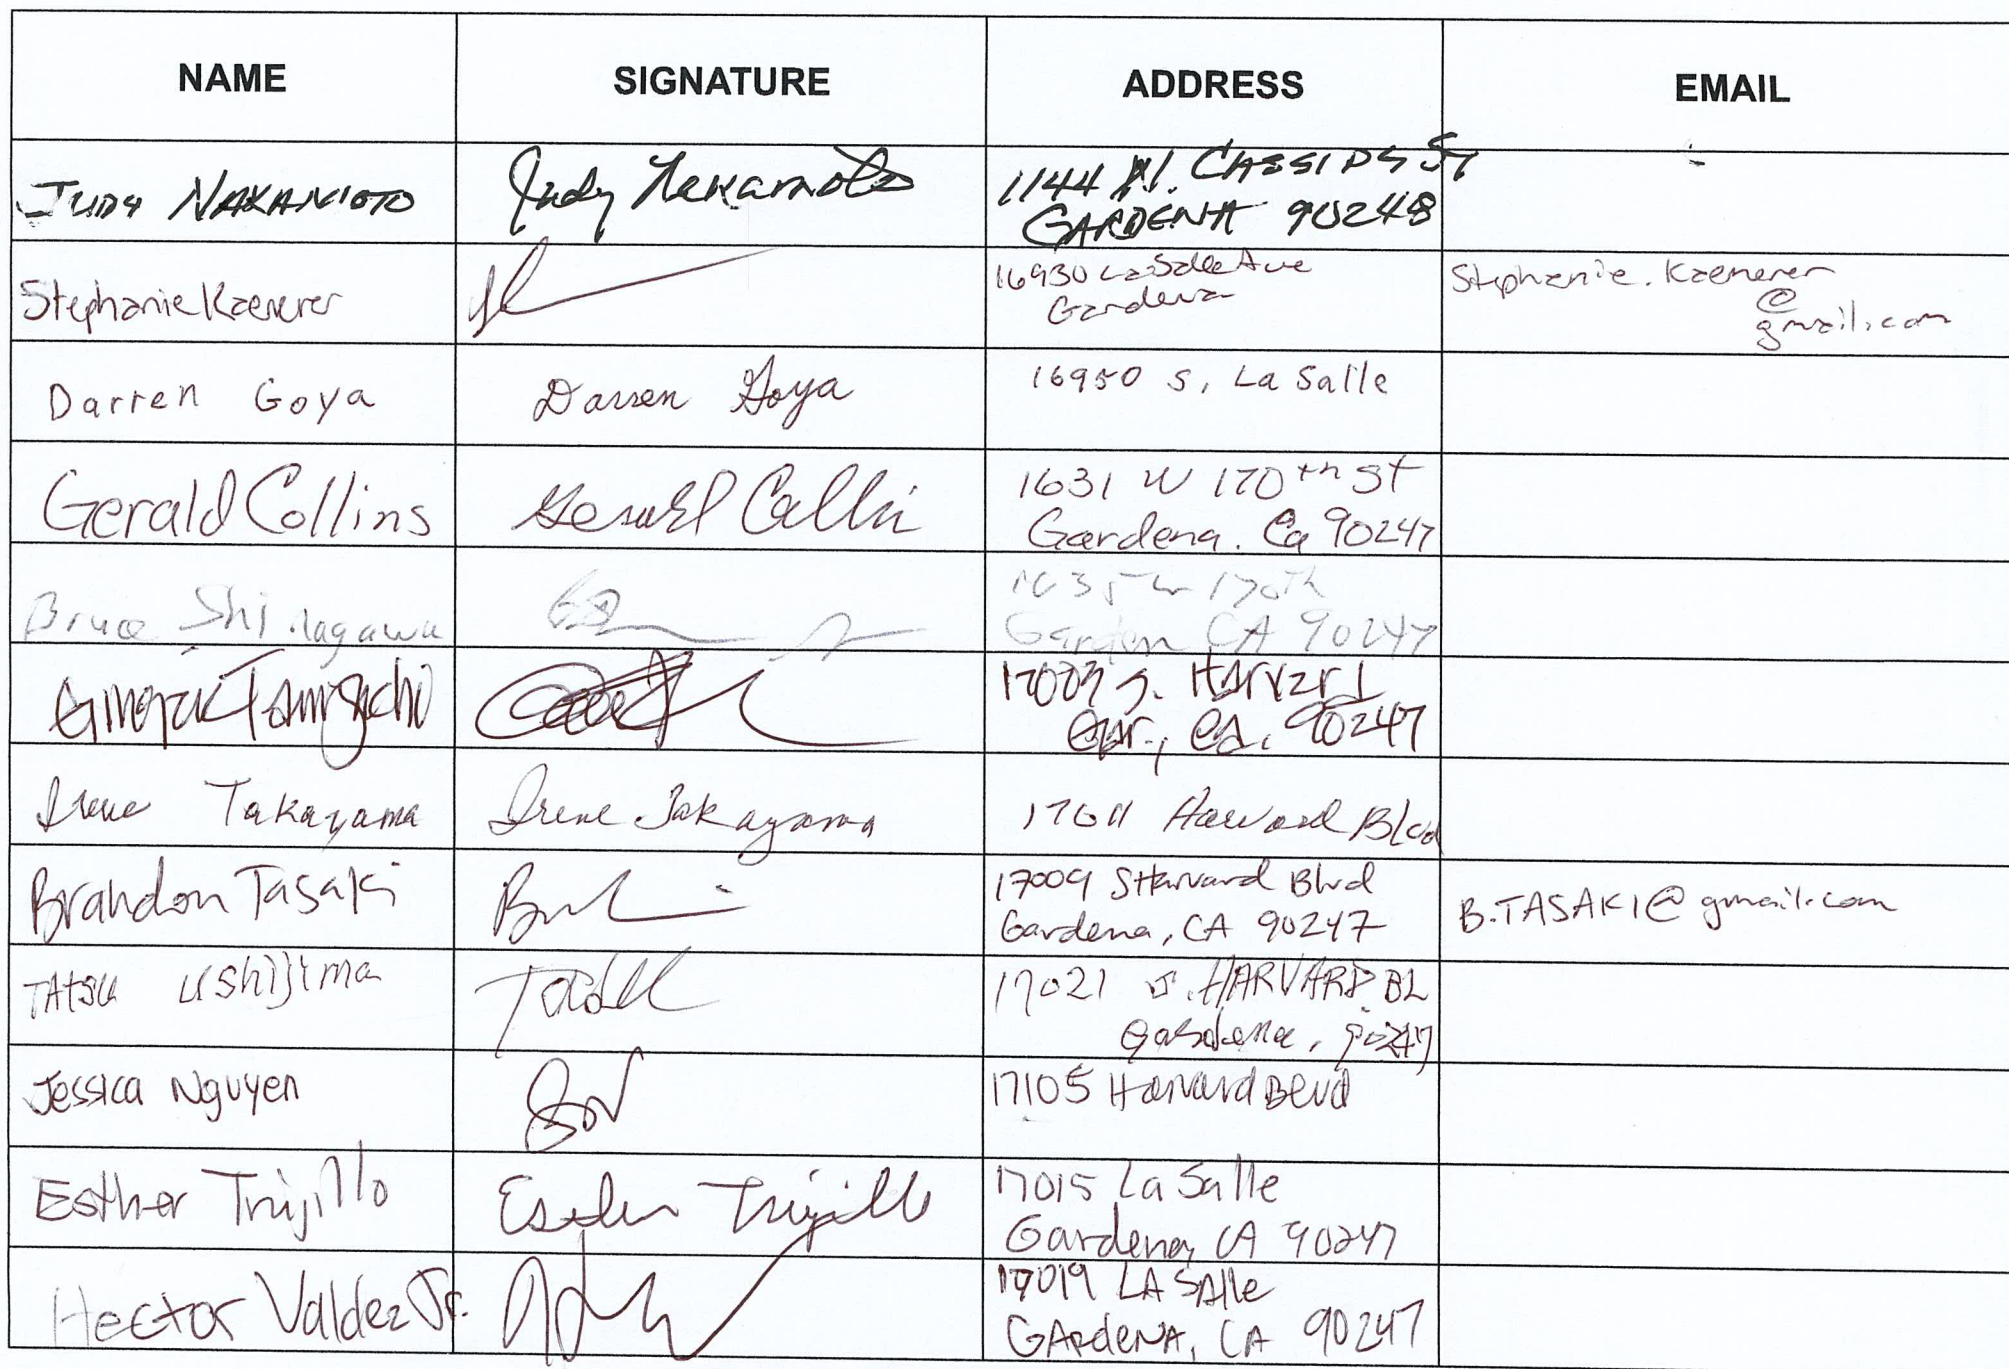 NAME SIGNATURE ADDRESS EMAIL
JUDY NAKAMOTO Judy Nakamoto 1144 W. CASSIDY ST
GARDENA 90248
Stephanie Kaemerer 16930 LaSalle Ave Stephanie.Kaemerer
Gardena @
gmail.com
Darren Goya Darren Goya 16950 S. La Salle
Gerald Collins Gerald Collin 1631 W 170th St
Gardena. Ca 90247
Bruce Shinagawa 1635 W 170th
Garden CA 90247
Taniguchi S. Harvard
Gar., Ca. 90247
Irene Takayama Irene Takayama 17011 Harvard Blvd
Brandon Tasaki 17009 S Harvard Blvd
Gardena, CA 90247 B.TASAKI@gmail.com
TATSU Ushijima 17021 S. HARVARD BL
Gardena, 90247
Jessica Nguyen 17105 Harvard Blvd
Esther Trujillo Esther Trujillo 17015 La Salle
Gardena, CA 90247
Hector Valdez Jr. 17019 LA SAlle
GArdeNA, CA 90247